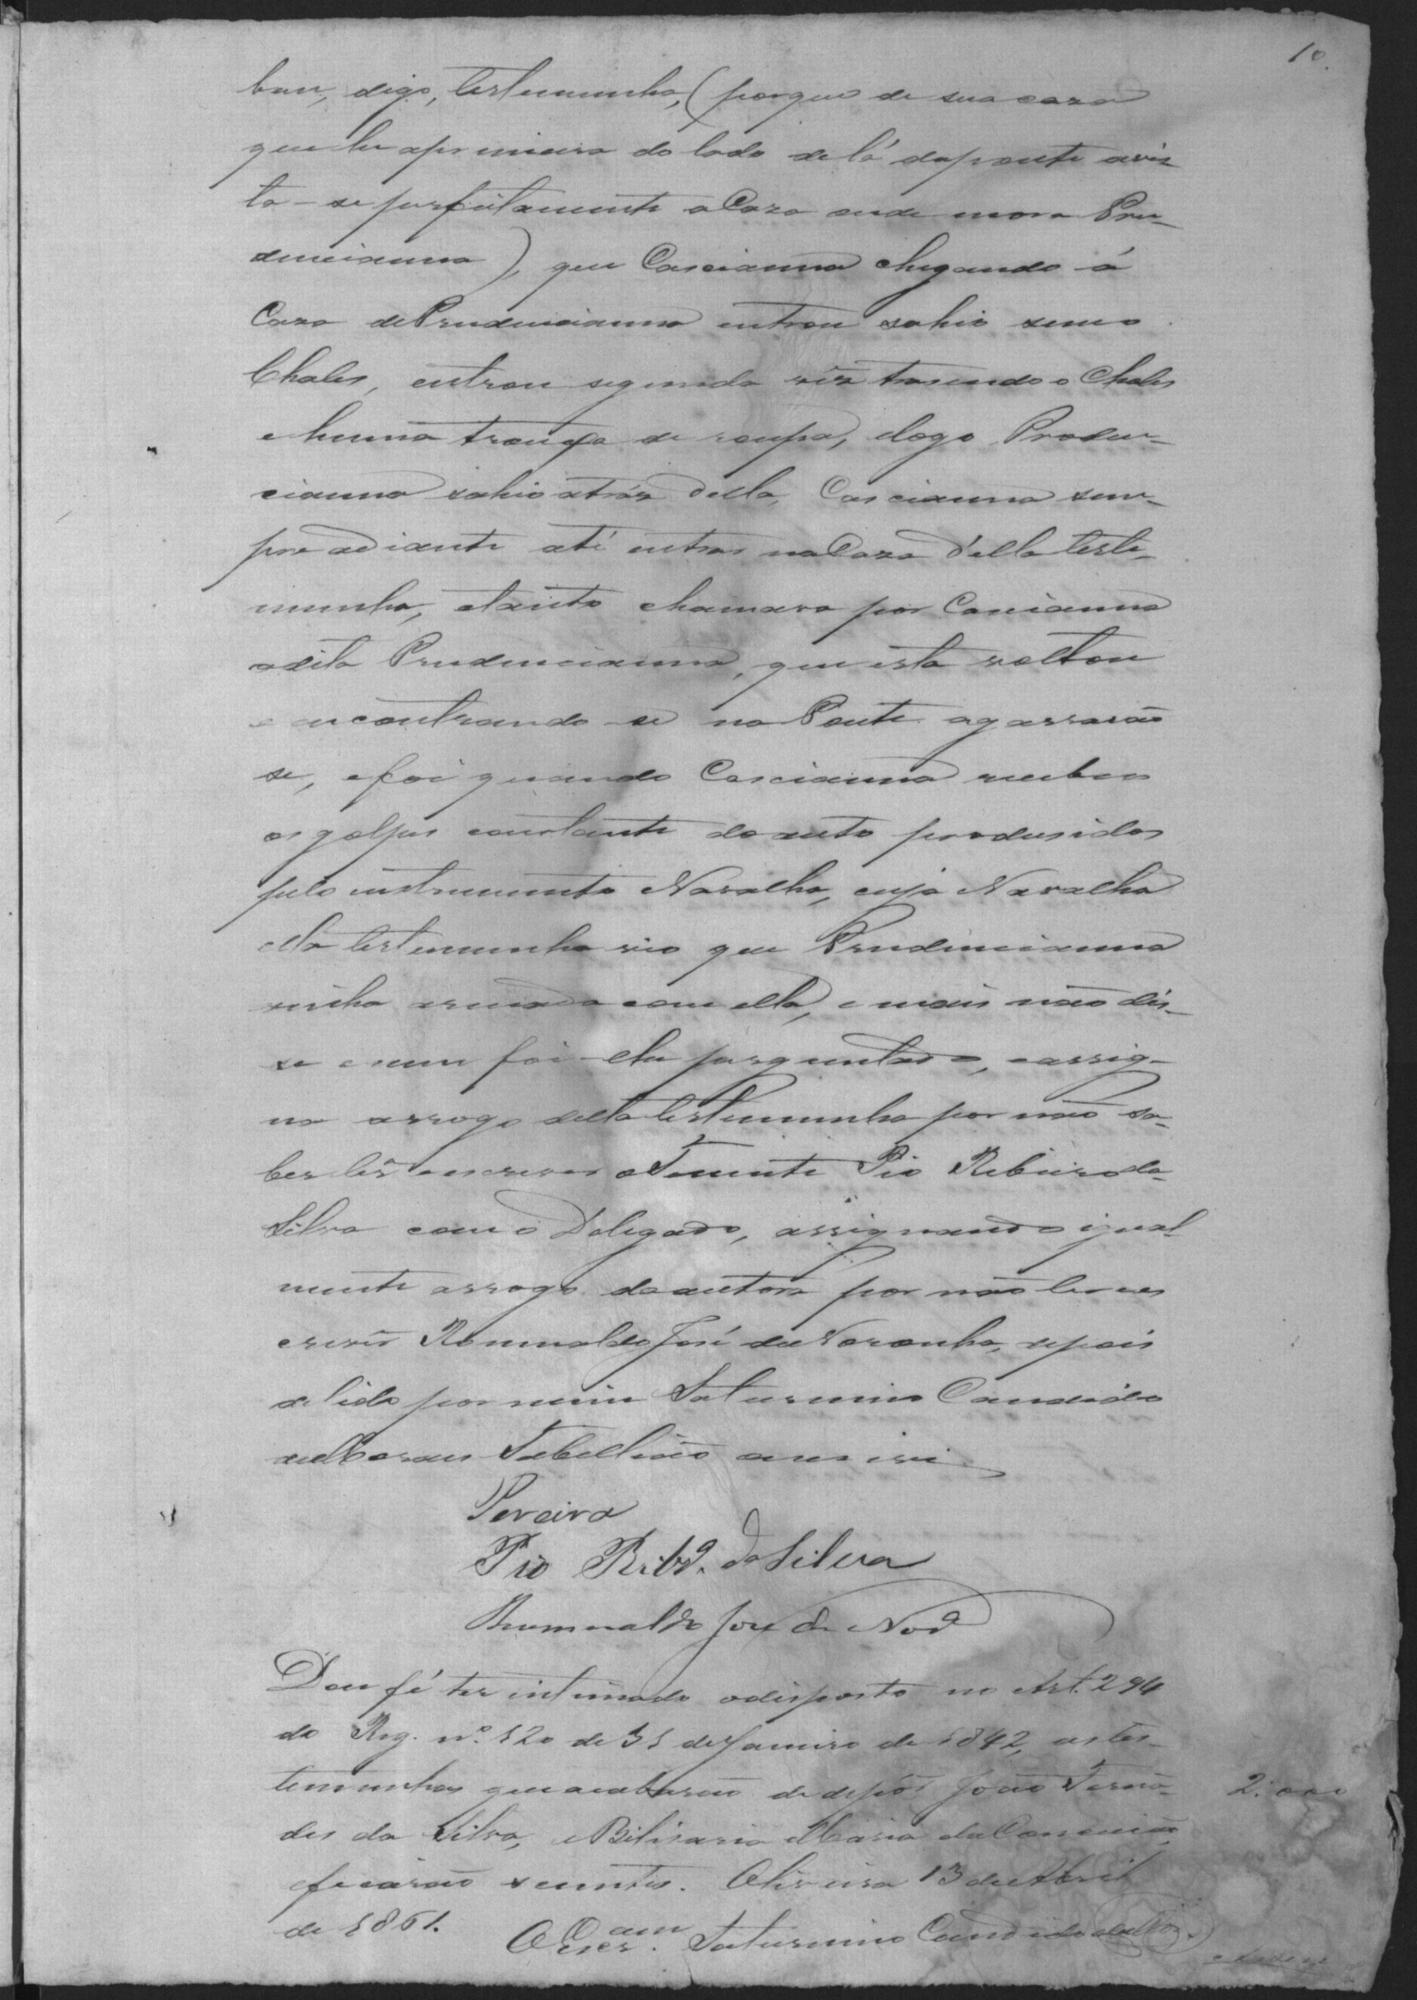 10.
bun, digo, testemunha, (porque de sua caza
que he aprimeira do lado de lá daponte avis
ta-se perfeitamente a Caza onde mora Pru-
denciamna), que Casciamna chegando á
Caza de Prudenciamna entrou sahio sem o
Chales, entrou segunda vez trasendo o Chales
e huma trouxa de roupa, e logo Pruden-
ciamna sahio atráz della, Casciamna sem-
pre adiante até entrar na Caza d'ella teste-
munha, e tanto chamara por Casciamna
a dita Prudenciamna, que esta voltou
e encontrando-se na Ponte agarrarão
se, e foi quando Casciamna recebeo
os golpes constante do auto produsidos
pelo instrumento Navalha, cuja Navalha
ella testemunha vio que Prudenciamna
vinha armada com ella, e mais não dis-
se e nem foi-lhe perguntado, e assig-
na arrogo desta testemunha por não sa-
ber lêr e escrever o Tenente Pio Ribeiro da
Silva com o Delegado, assignando igual
mente arrogo da autora por não ler e es
crever Romualdo José de Noronha, depois
de lido por mim Saturnino Candido
de Moraes Tabellião o escrevi
Pereira
Pio Ribr.º da Silva
Rumualdo José de Nor.ª
Dou fé ter intimado o disposto no Art. 294
do Reg. nº 120 de 31 de Janeiro de 1842, as tes-
temunhas que acabarão de depôr João Ferna-
des da Silva, e Bilisaria Maria da Conceição
e ficarão scientes. Oliveira 13 de Abril
de 1861.
2:000
O Escr.am Saturnino Candido de